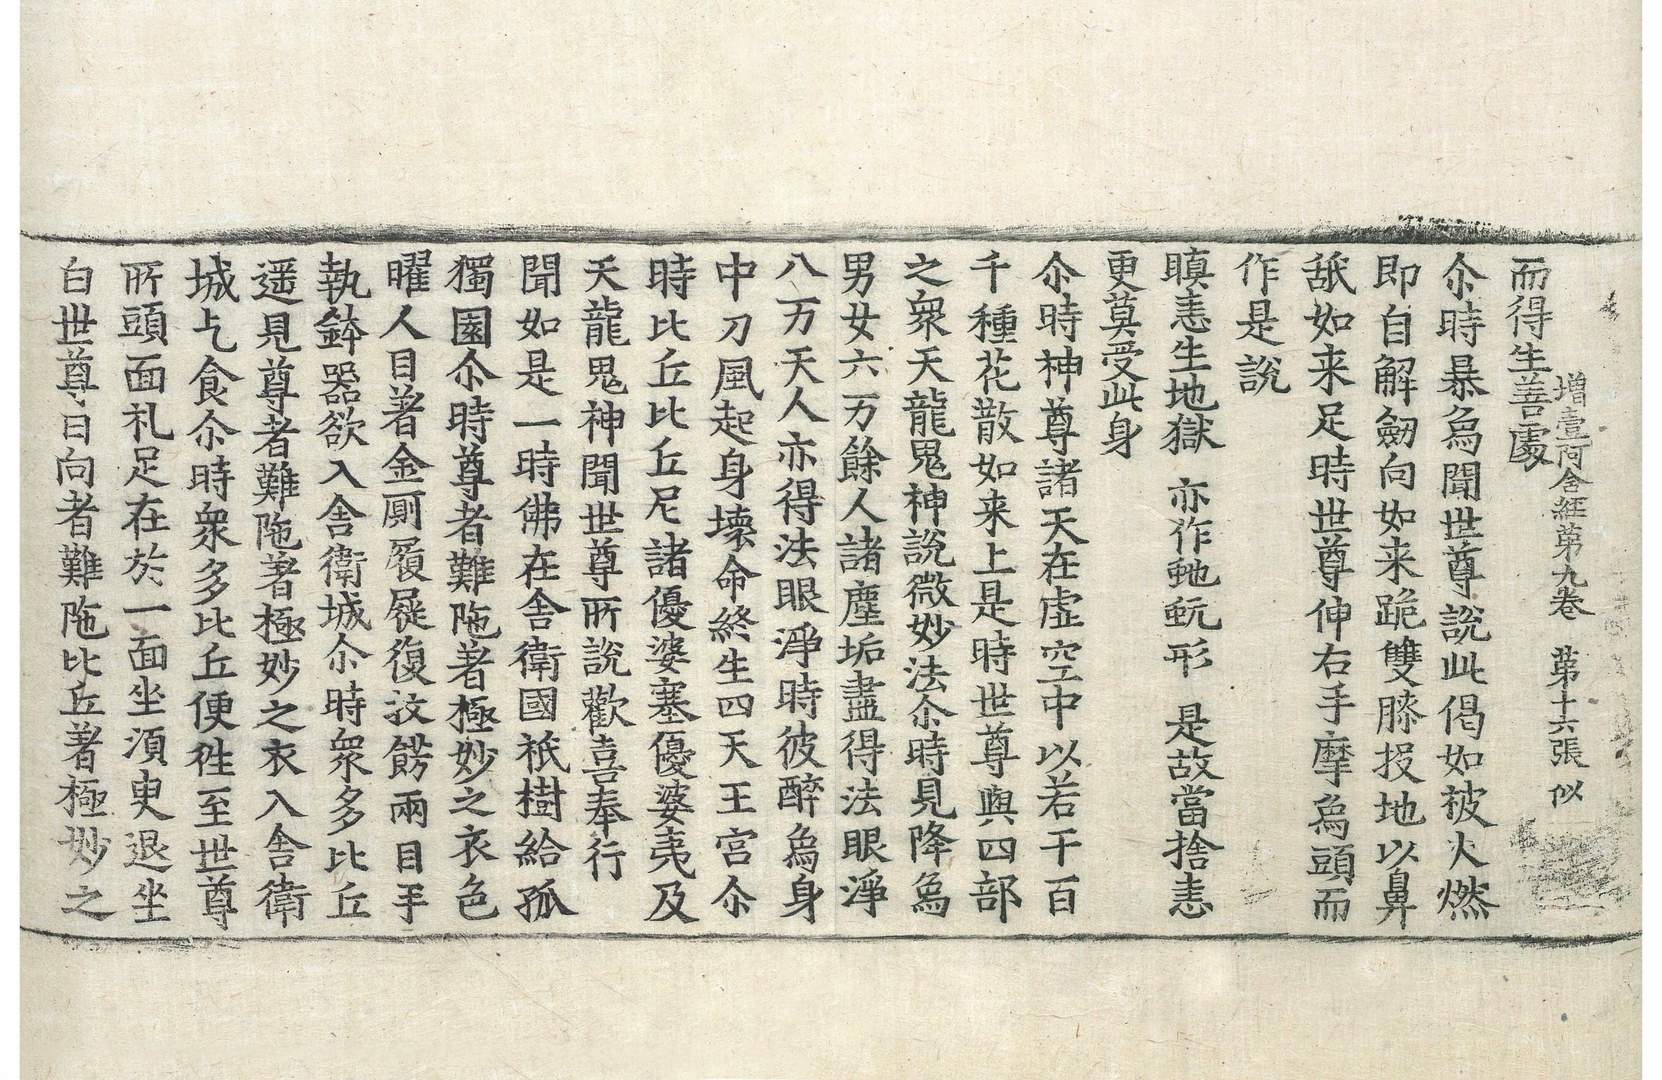 增壹阿含經第九卷　第十六張　似
而得生善處
尒時暴烏聞世尊說此偈如被火燃
即自解劒向如来跪雙膝投地以鼻
舐如来足時世尊伸右手摩烏頭而
作是說
瞋恚生地獄　亦作虵蚖形　是故當捨恚
更莫受此身
尒時神尊諸天在虛空中以若干百
千種花散如来上是時世尊與四部
之衆天龍鬼神說微妙法尒時見降烏
男女六万餘人諸塵垢盡得法眼淨
八万天人亦得法眼淨時彼醉烏身
中刀風起身壞命終生四天王宮尒
時比丘比丘尼諸優婆塞優婆夷及
天龍鬼神聞世尊所說歡喜奉行
聞如是一時佛在舍衛國祇樹給孤
獨園尒時尊者難陁著極妙之衣色
曜人目著金厠履屣復抆餝兩目手
執鉢器欲入舍衛城尒時衆多比丘
遥見尊者難陁著極妙之衣入舍衛
城乞食尒時衆多比丘便徃至世尊
所頭面礼足在於一面坐湏臾退坐
白世尊曰向者難陁比丘著極妙之